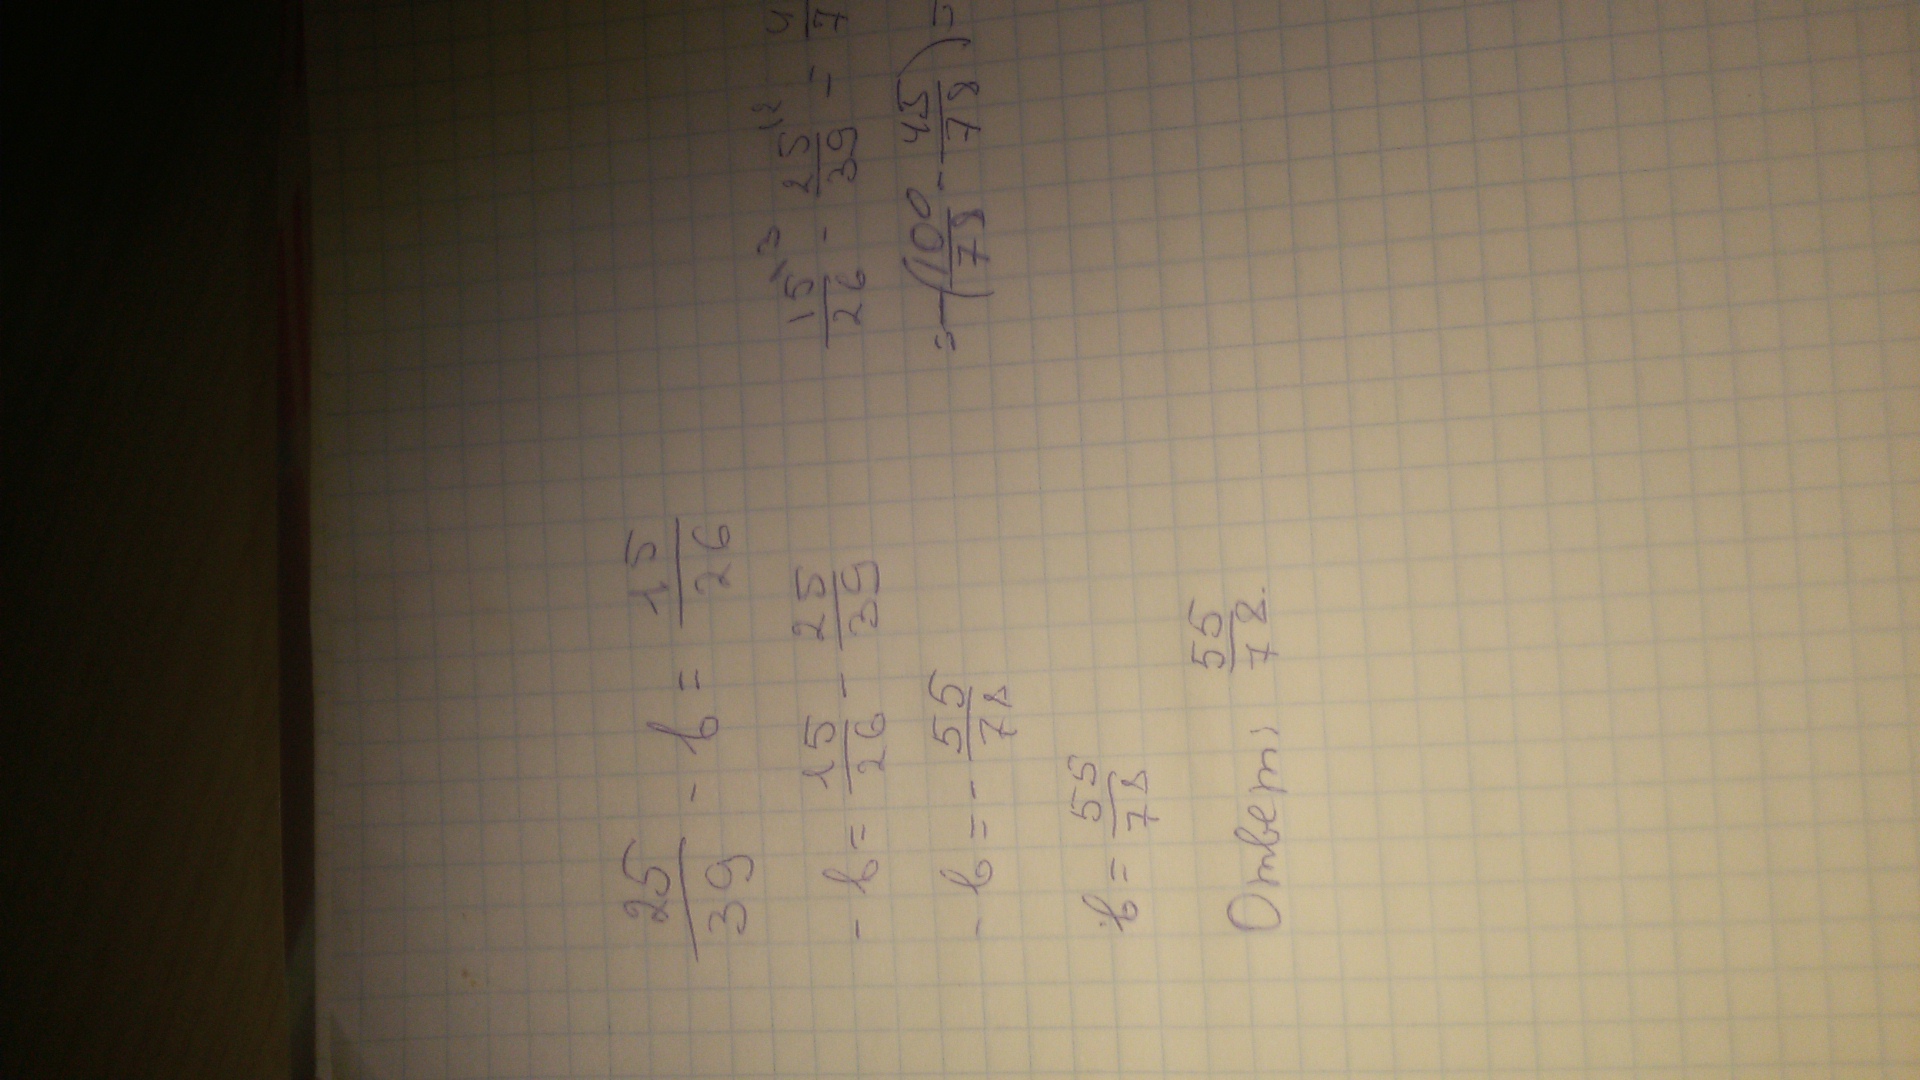 25/39 - b = 15/26
-b = 15/26 - 25/39
-b = - 55/78
b = 55/78
Ответ: 55/78.
15/26 \3 - 25/39 \2 =
= -(100/78 - 45/78) =